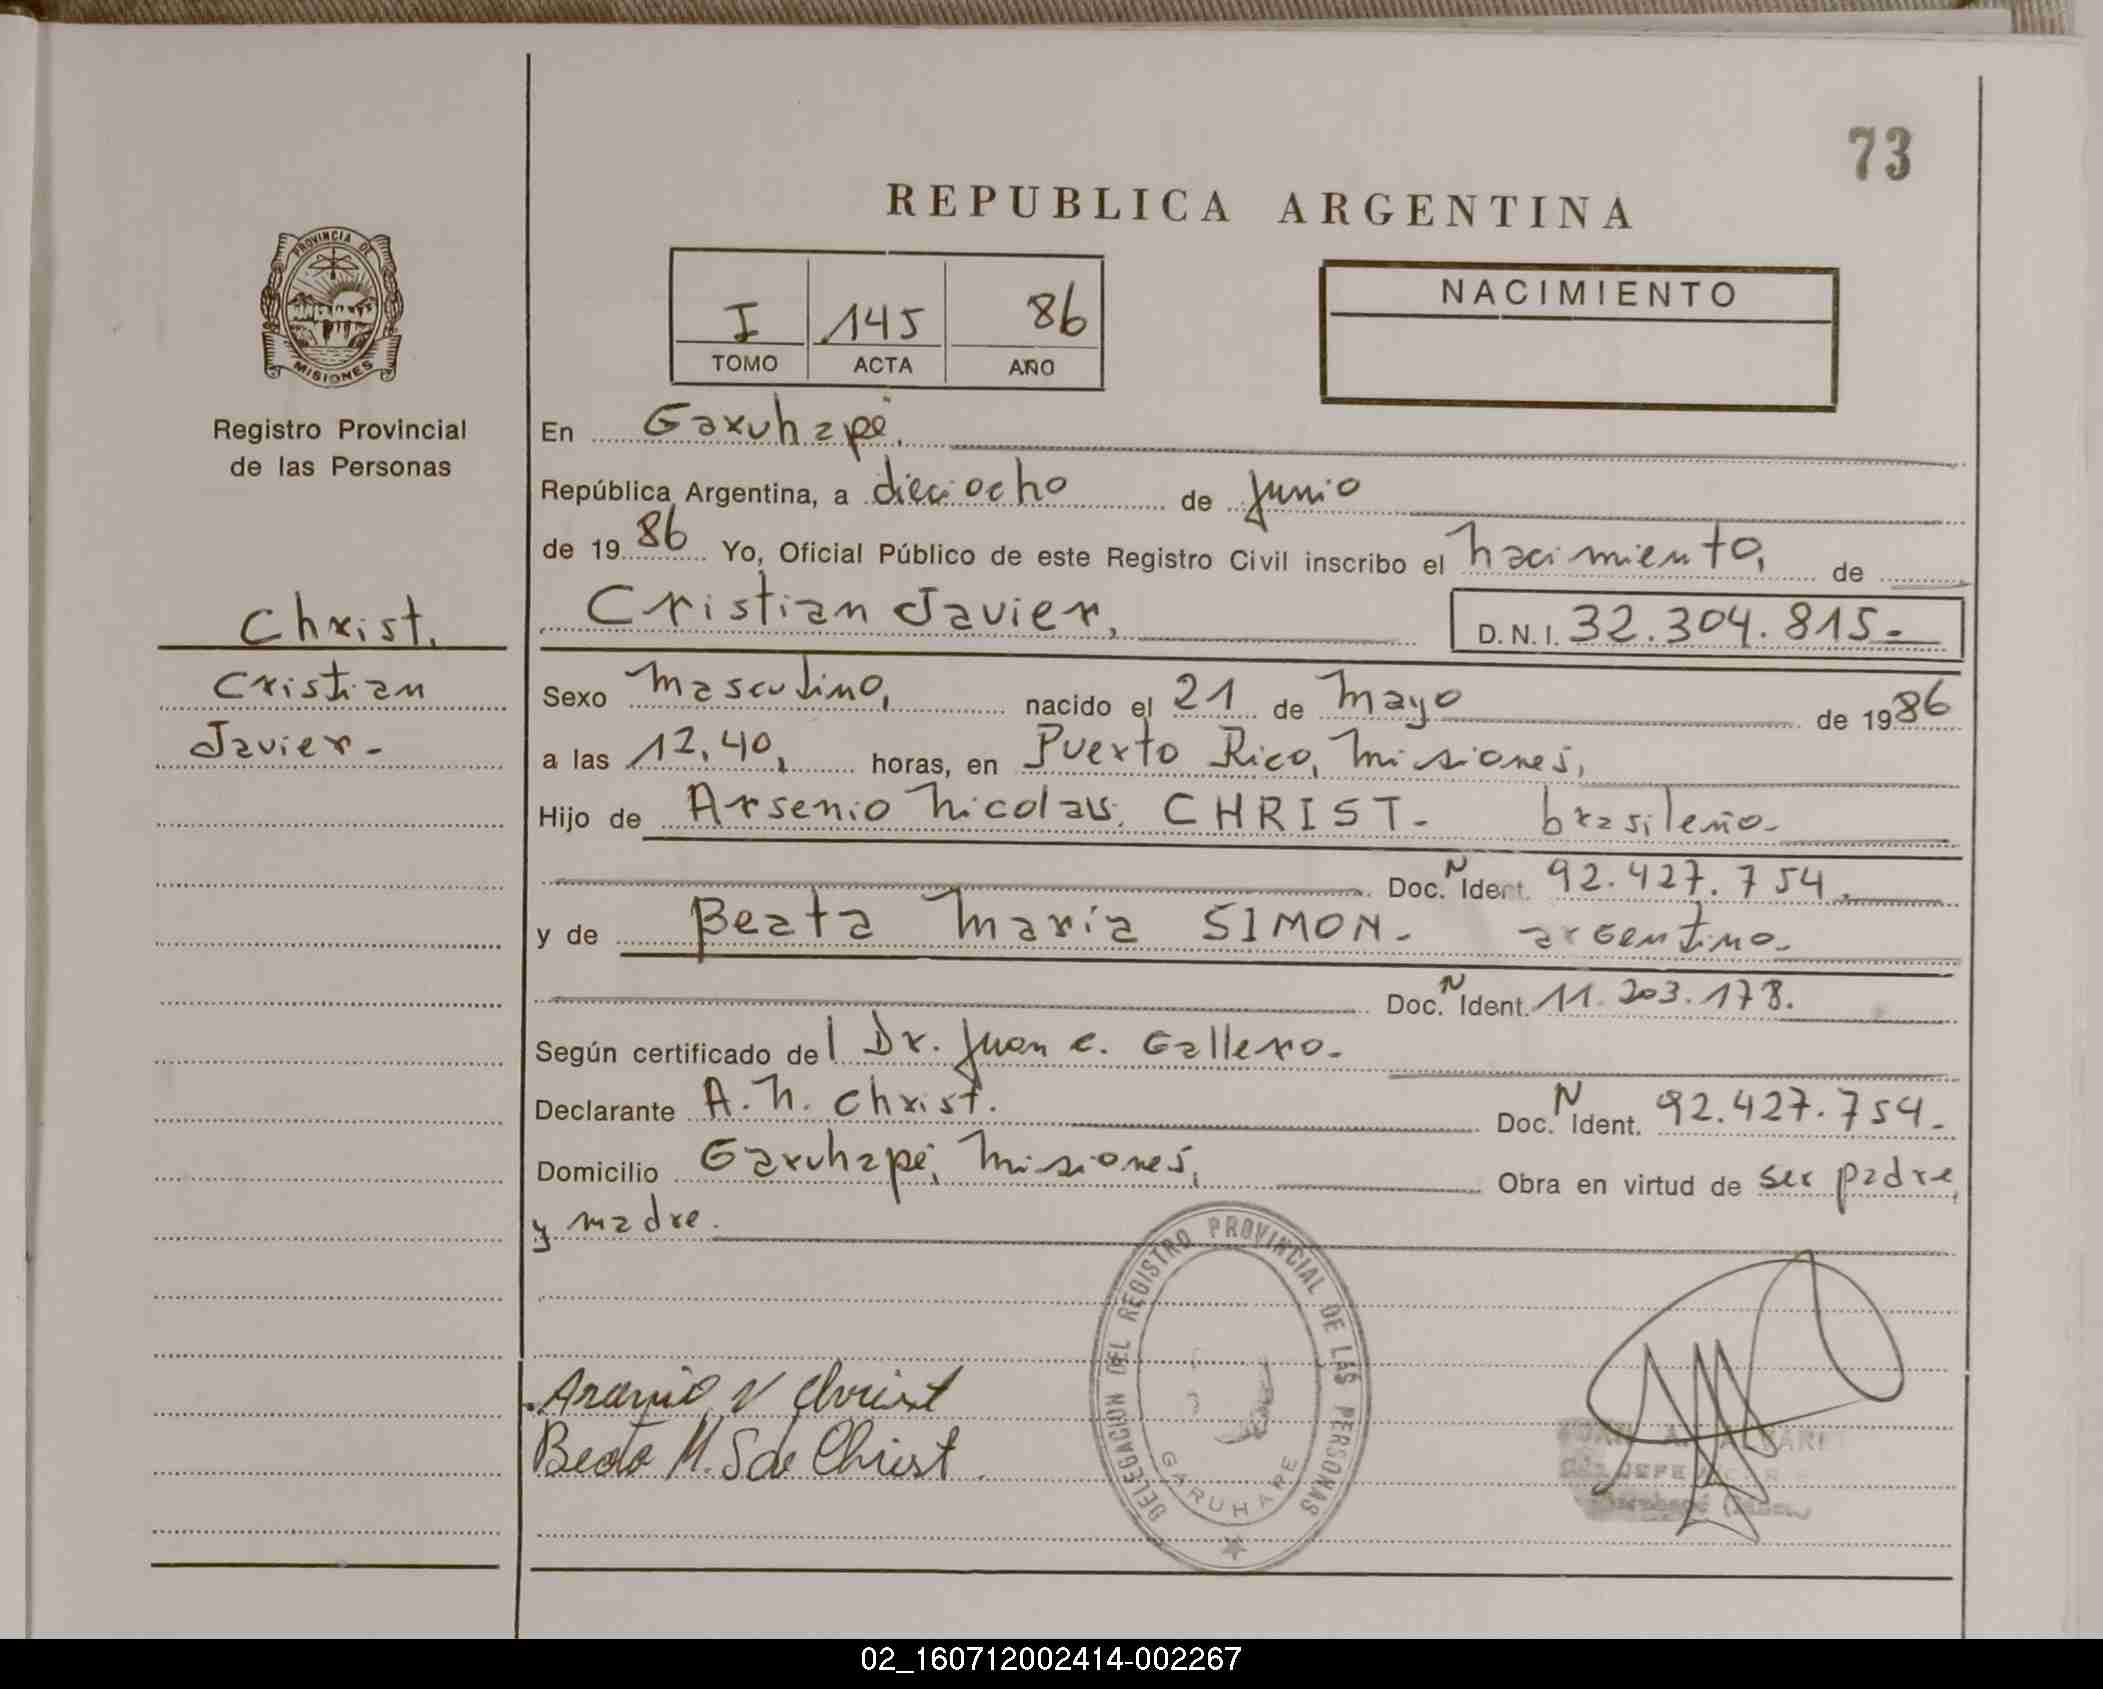 73
REPUBLICA ARGENTINA
PROVINCIA DE
MISIONES
Registro Provincial
de las Personas
I 145 86
TOMO ACTA AÑO
NACIMIENTO
Christ.
Cristian
Javier-
En Garuhapé,
República Argentina, a dieciocho de junio
de 1986 Yo, Oficial Público de este Registro Civil inscribo el nacimiento, de
Cristian Javier, D.N.I. 32.304.815-
Sexo masculino, nacido el 21 de mayo de 1986
a las 12,40, horas, en Puerto Rico, Misiones,
Hijo de Arsenio Nicolas CHRIST- brasileño-
Doc. N Ident. 92.427.754.
y de Beata Maria SIMON- argentino-
Doc. N Ident. 11.203.178.
Según certificado del Dr. Juan C. Gallero-
Declarante A.N. Christ. Doc. N Ident. 92.427.754-
Domicilio Garuhapé, Misiones, Obra en virtud de ser padre
y madre.
N Christ
Beata M. S de Christ.
DELEGACION DEL REGISTRO PROVINCIAL DE LAS PERSONAS
GARUHAPE
02_160712002414-002267